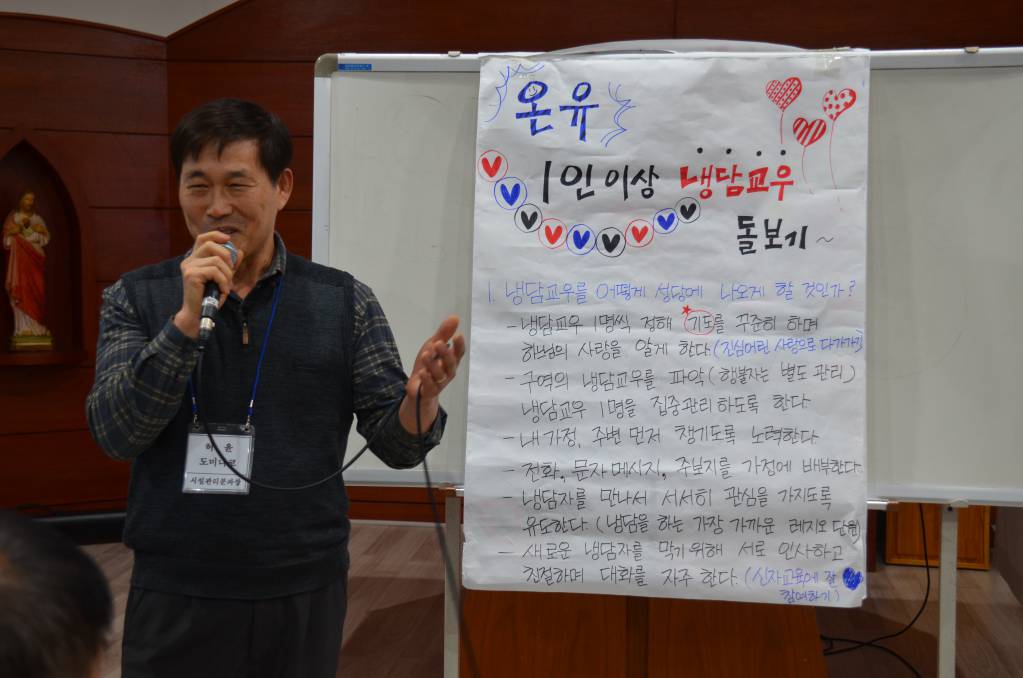 온유
1인 이상 냉담교우
돌보기~
1. 냉담교우를 어떻게 성당에 나오게 할 것인가?
- 냉담교우 1명씩 정해 기도를 꾸준히 하며
하느님의 사랑을 알게 한다. (진심어린 사랑으로 다가가기)
- 구역의 냉담교우를 파악 (행불자는 별도 관리)
냉담교우 1명을 집중관리하도록 한다.
- 내 가정, 주변 먼저 챙기도록 노력한다.
- 전화, 문자메시지, 주보지를 가정에 배부한다.
- 냉담자를 만나서 서서히 관심을 가지도록
유도한다 (냉담을 하는 가장 가까운 레지오 단원)
- 새로운 냉담자를 막기위해 서로 인사하고
친절하며 대화를 자주 한다. (신자교육에 잘
참여하기)
윤
도미니코
시설관리분과장